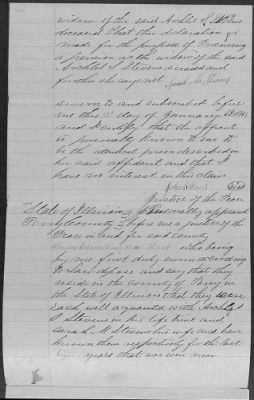 widow of the said Archbl S Stevens
deceased that this declaration is
made for the purpose of Procuring
a pension as the widow of the said
Archbl S Stevens deceased and
further she says not. Sarah M Stevens
sworn to and subscribed before
me this day of January 1863
and I certify that the affiant
is personally known to me to
be the identical person described in
her said affidavit and that I
have no interest in this claim
Justice of the Peace
State of Illinois Personally appeared
Perry County before me a Justice of the
Peace in and for said county
who being
by me first duly sworn according
to law depose and say that they
reside in the county of Perry in
the State of Illinois that they were
each well aquainted with Archbl
S Stevens in his life time and
Sarah M Stevens his wife and have
known them respectively for the last
years that we were near